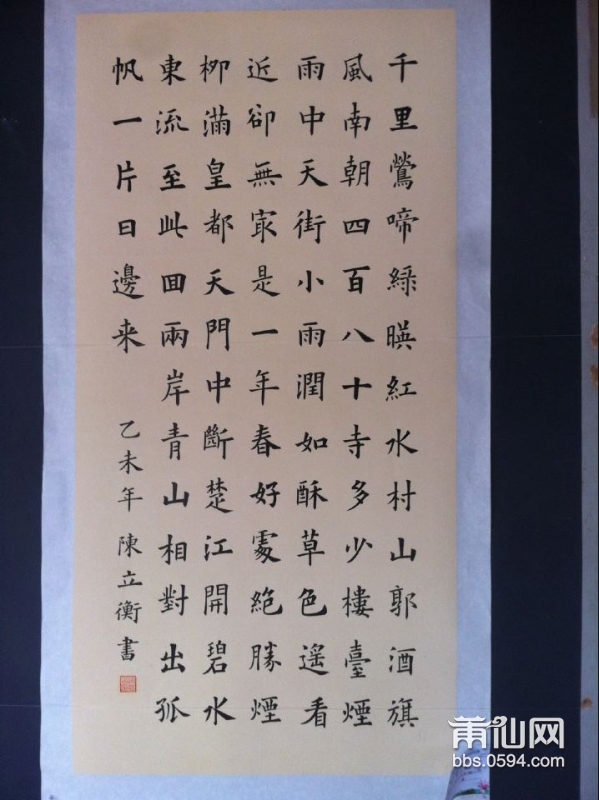 千里鶯啼綠暎紅水村山郭酒旗
風南朝四百八十寺多少樓臺煙
雨中天街小雨潤如酥草色遥看
近卻無寂是一年春好處絶勝煙
柳滿皇都天門中斷楚江開碧水
東流至此回兩岸青山相對出孤
帆一片日邊来
乙未年陳立衡書
莆仙网
bbs.0594.com